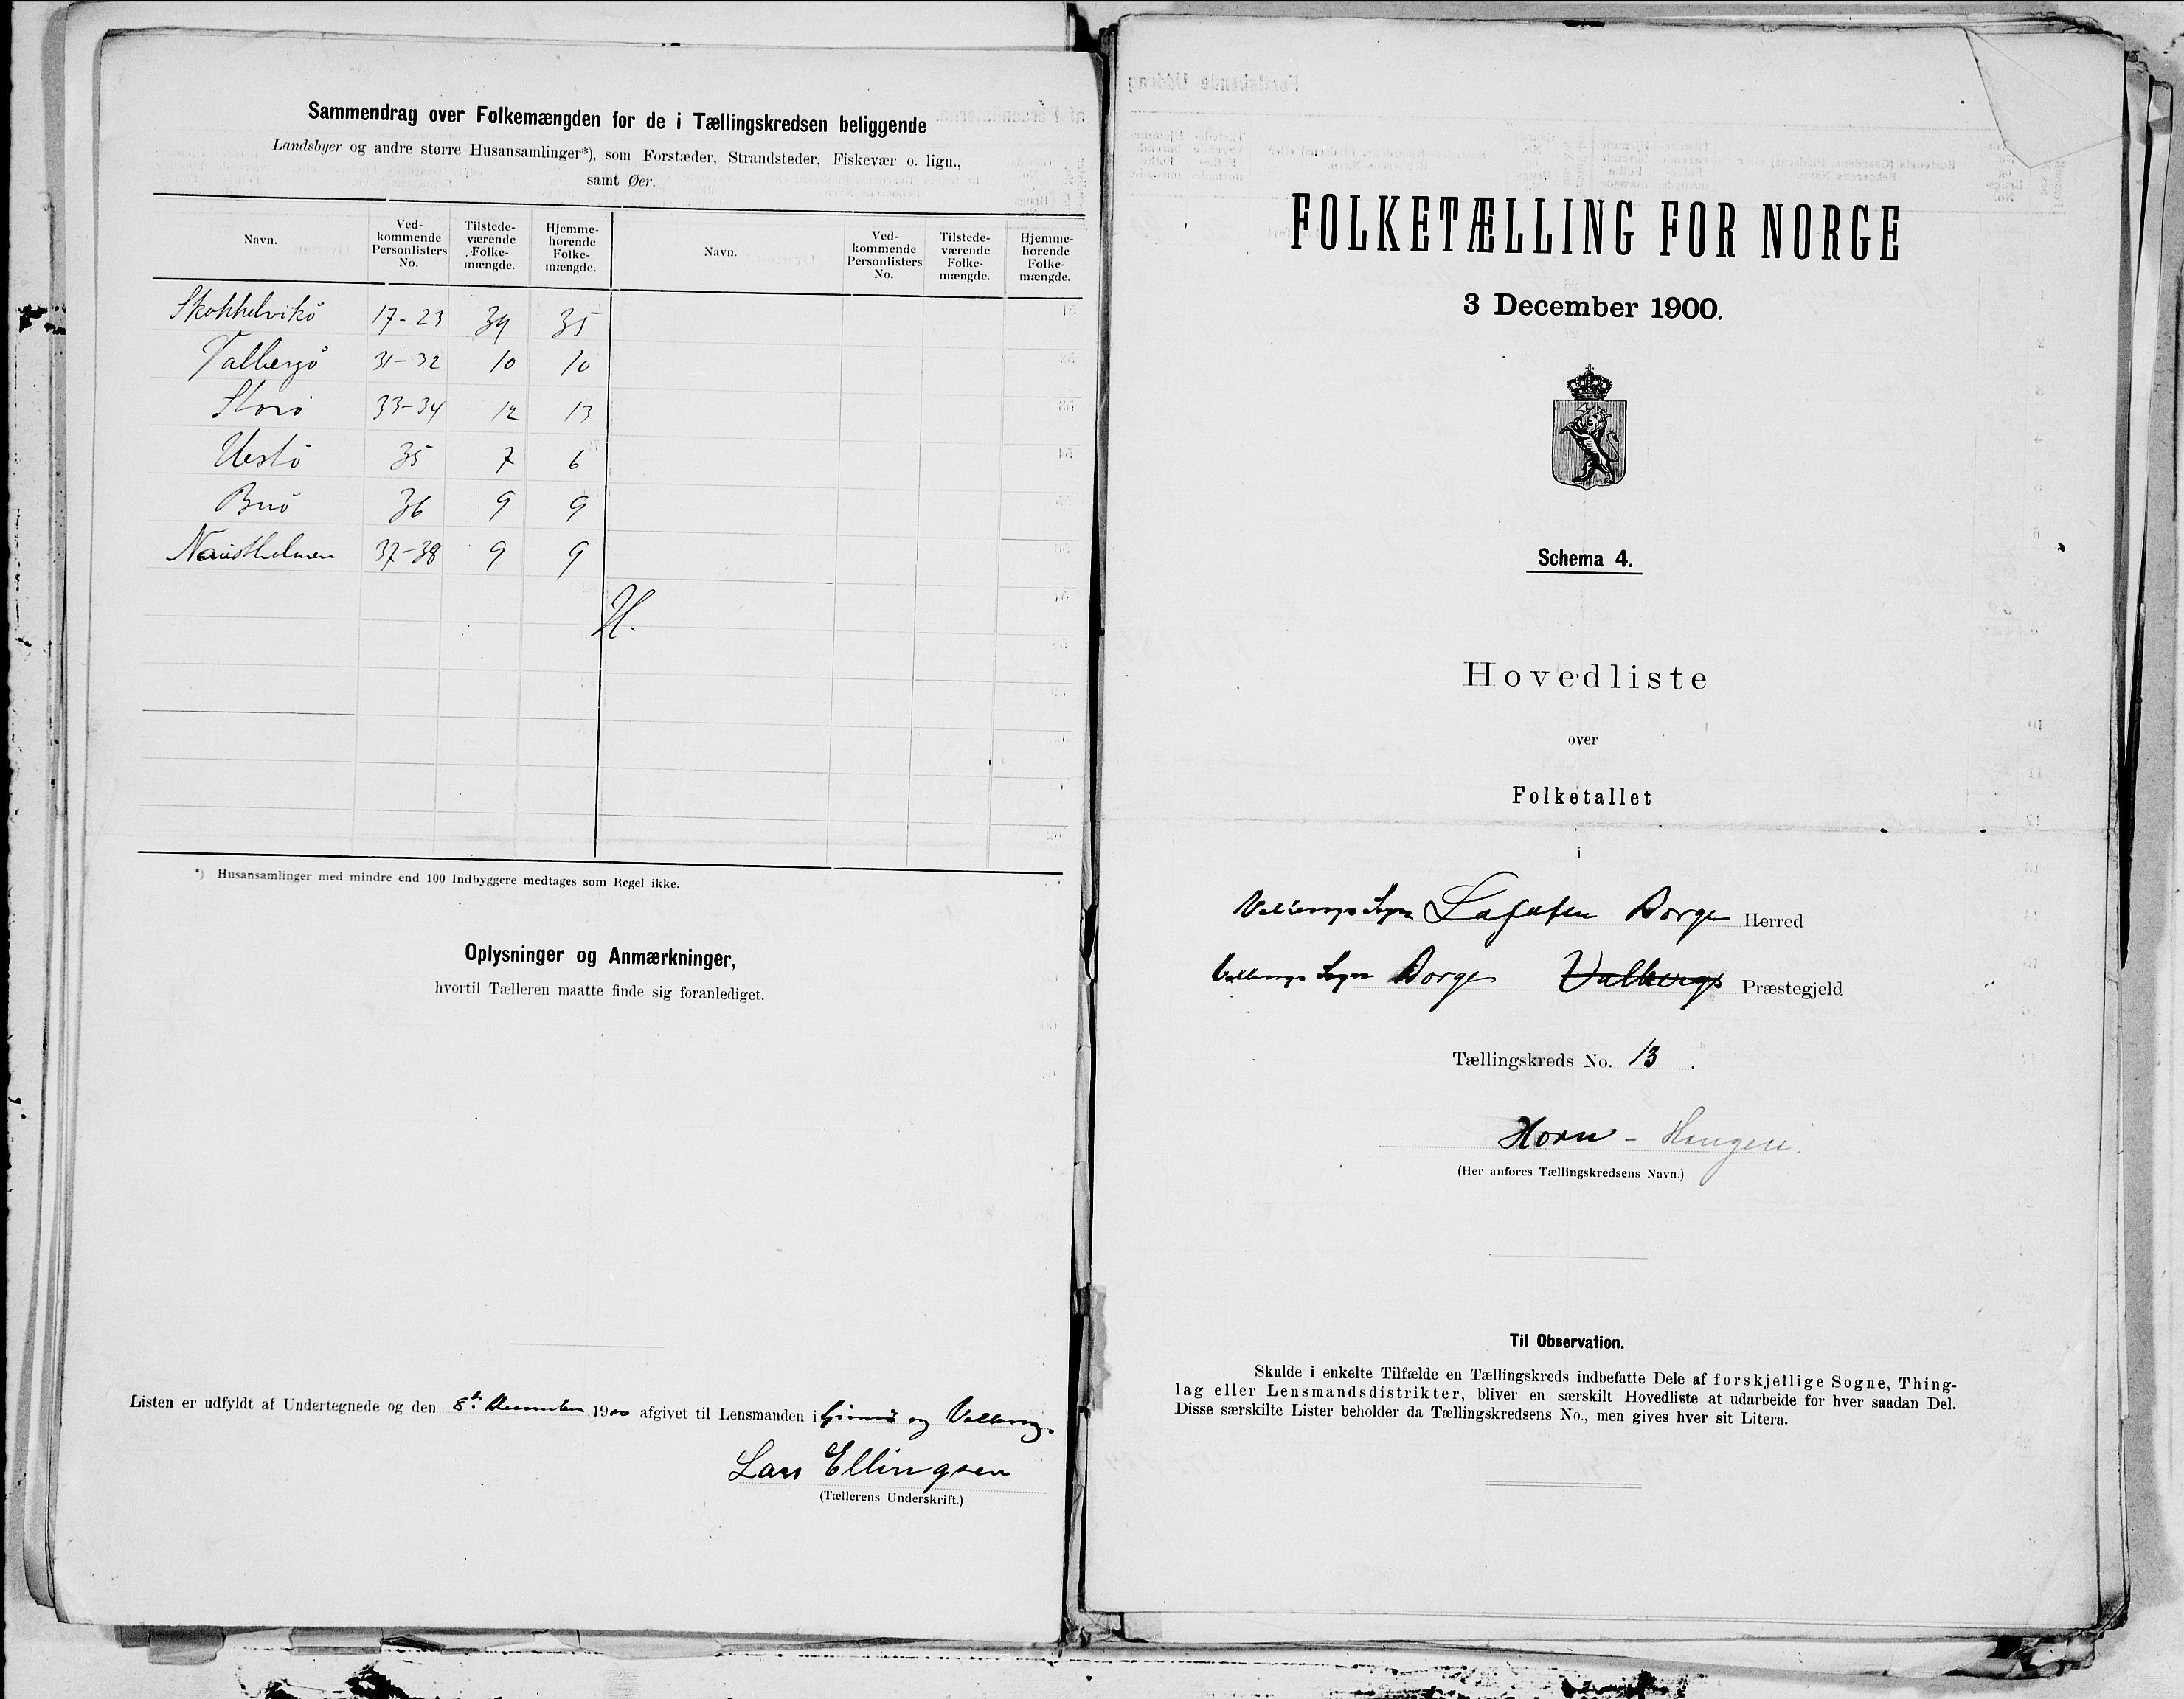 Sammendrag over Folkemængden for de i Tællingskredsen beliggende
Landsbyer og andre større Husansamlinger*), som Forstæder, Strandsteder, Fiskevær o. lign.,
samt Øer.
Navn. Ved-kommende Personlisters No. Tilstede-værende Folke-mængde. Hjemme-hørende Folke-mængde. Navn. Ved-kommende Personlisters No. Tilstede-værende Folke-mængde. Hjemme-hørende Folke-mængde.
17-23 35
31-32 10 10
Storö 33-34 12 13
35 7 6
36 9 9
Naustholmen 37-38 9 9
H.
*) Husansamlinger med mindre end 100 Indbyggere medtages som Regel ikke.
Oplysninger og Anmærkninger,
hvortil Tælleren maatte finde sig foranlediget.
Listen er udfyldt af Undertegnede og den 8de December 1900 afgivet til Lensmanden i Gimsö og Valberg.
Lars Ellingsen
(Tællerens Underskrift.)
FOLKETÆLLING FOR NORGE
3 December 1900.
Schema 4.
Hovedliste
over
Folketallet
i
Valbergs Sogn Borge Herred
Valbergs Sogn Borge Valbergs Præstegjeld
Tællingskreds No. 13.
Horn - Haugen.
(Her anføres Tællingskredsens Navn.)
Til Observation.
Skulde i enkelte Tilfælde en Tællingskreds indbefatte Dele af forskjellige Sogne, Thing-
lag eller Lensmandsdistrikter, bliver en særskilt Hovedliste at udarbeide for hver saadan Del.
Disse særskilte Lister beholder da Tællingskredsens No., men gives hver sit Litera.